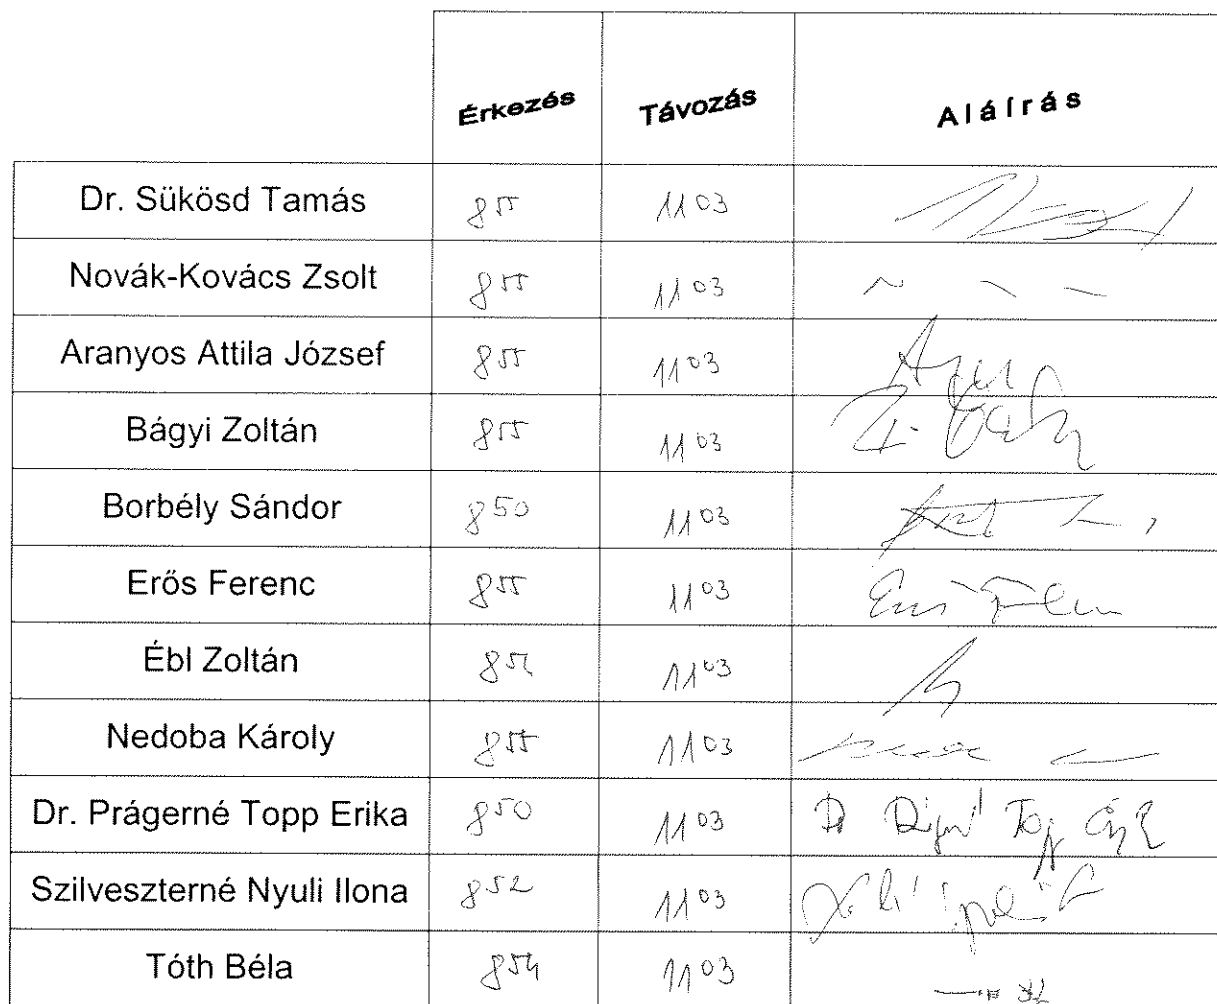 Érkezés Távozás Aláírás
Dr. Sükösd Tamás 8 55 11 03
Novák-Kovács Zsolt 8 55 11 03
Aranyos Attila József 8 55 11 03
Bágyi Zoltán 8 55 11 03
Borbély Sándor 8 50 11 03
Erős Ferenc 8 55 11 03
Ébl Zoltán 11 03
Nedoba Károly 8 55 11 03
Dr. Prágerné Topp Erika 8 50 11 03
Szilveszterné Nyuli Ilona 8 52 11 03
Tóth Béla 8 54 11 03